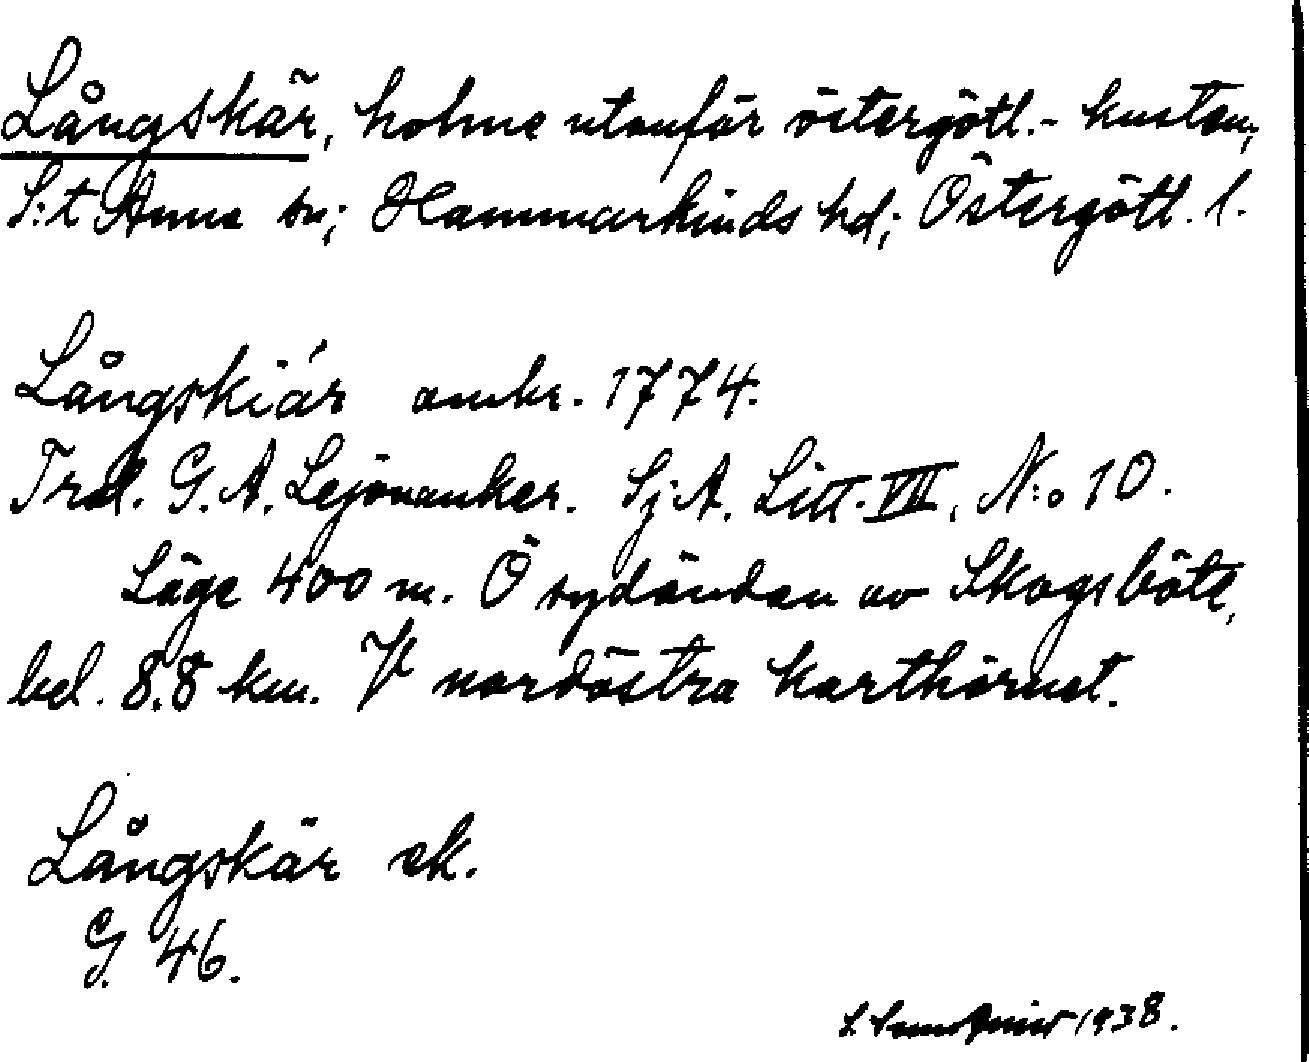 Långskär, holme utanför östergötl.- kusten,
S:t Anna sn; Hammarkinds hd; Östergötl. l.
Långskiär ambr. 1774.
Trol. G. A. Lejonanker. Sj. A. Litt. VIII, N:o 10.
Läge 400 m. Ö sydändan av Skogsböte,
bel. 8.8 km. V nordöstra karthörnet.
Långskär ek.
G. 46.
S. 1938.